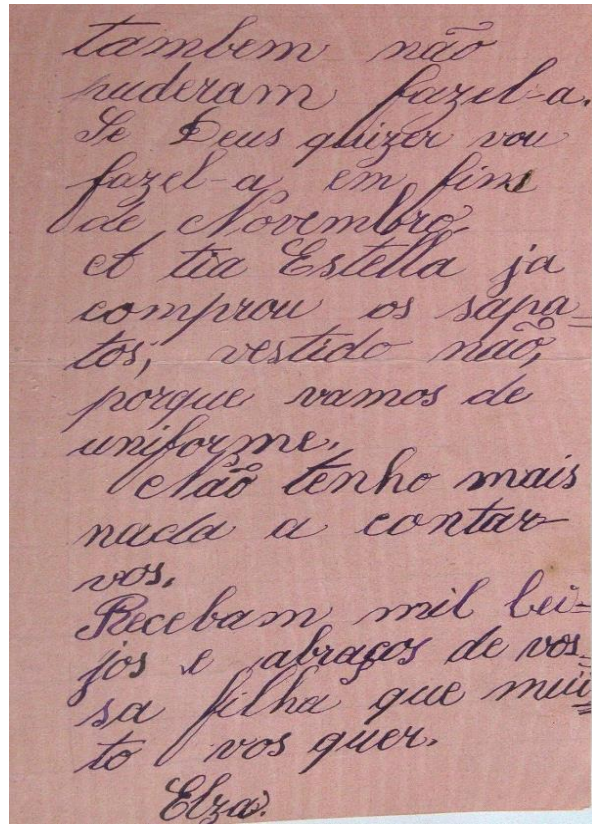 tambem não
puderam fazel-a.
Se Deus quizer vou
fazel-a, em fins
de Novembro.
A tia Estella ja
comprou os sapa=
tos, vestido não,
porque vamos de
uniforme.
Não tenho mais
nada a contar-
vos.
Recebam mil bei-
jos e abraços de vos-
sa filha que mui=
to vos quer.
Elza.